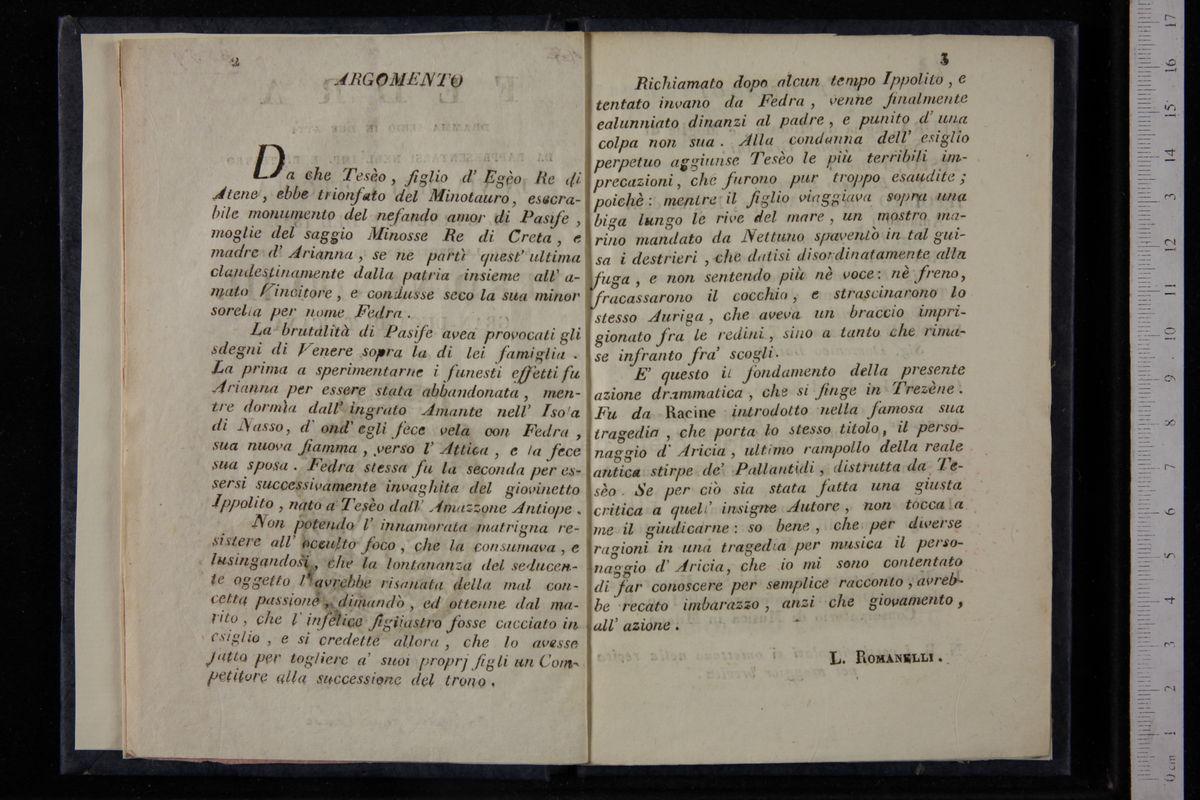 2
ARGOMENTO
Da che Tesèo, figlio d' Egèo Re di
Atene, ebbe trionfato del Minotauro, esecra-
bile monumento del nefando amor di Pasife,
moglie del saggio Minosse Re di Creta, e
madre d' Arianna, se ne partì quest' ultima
clandestinamente dalla patria insieme all' a-
mato Vincitore, e condusse seco la sua minor
sorella per nome Fedra.
La brutalità di Pasife avea provocati gli
sdegni di Venere sopra la di lei famiglia.
La prima a sperimentarne i funesti effetti fu
Arianna per essere stata abbandonata, men-
tre dormìa dall' ingrato Amante nell' Isola
di Nasso, d' ond' egli fece vela con Fedra,
sua nuova fiamma, verso l' Attica, e la fece
sua sposa. Fedra stessa fu la seconda per es-
sersi successivamente invaghita del giovinetto
Ippolito, nato a Tesèo dall' Amazzone Antiope.
Non potendo l' innamorata matrigna re-
sistere all' occulto foco, che la consumava, e
lusingandosi, che la lontananza del seducen-
te oggetto l' avrebbe risanata della mal con-
cetta passione, dimandò, ed ottenne dal ma-
rito, che l' infelice figliastro fosse cacciato in
esiglio, e si credette allora, che lo avesse
fatto per togliere a' suoi proprj figli un Com-
petitore alla successione del trono.
3
Richiamato dopo alcun tempo Ippolito, e
tentato invano da Fedra, venne finalmente
calunniato dinanzi al padre, e punito d' una
colpa non sua. Alla condanna dell' esiglio
perpetuo aggiunse Tesèo le più terribili im-
precazioni, che furono pur troppo esaudite;
poichè: mentre il figlio viaggiava sopra una
biga lungo le rive del mare, un mostro ma-
rino mandato da Nettuno spaventò in tal gui-
sa i destrieri, che datisi disordinatamente alla
fuga, e non sentendo più nè voce: nè freno,
fracassarono il cocchio, e strascinarono lo
stesso Auriga, che aveva un braccio impri-
gionato fra le redini, sino a tanto che rima-
se infranto fra' scogli.
E' questo il fondamento della presente
azione drammatica, che si finge in Trezène.
Fu da Racine introdotto nella famosa sua
tragedia, che porta lo stesso titolo, il perso-
naggio d' Aricia, ultimo rampollo della reale
antica stirpe de' Pallantidi, distrutta da Te-
sèo. Se per ciò sia stata fatta una giusta
critica a quell' insigne Autore, non tocca a
me il giudicarne: so bene, che per diverse
ragioni in una tragedia per musica il perso-
naggio d' Aricia, che io mi sono contentato
di far conoscere per semplice racconto, avreb-
be recato imbarazzo, anzi che giovamento,
all' azione.
L. ROMANELLI.
0 cm 1 2 3 4 5 6 7 8 9 10 11 12 13 14 15 16 17